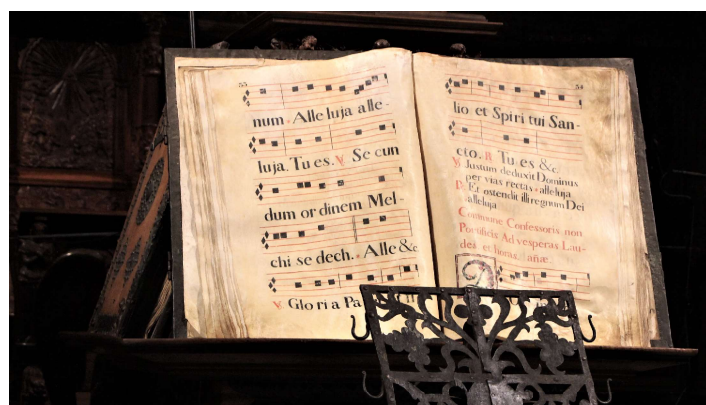 55
num. Alleluja alle-
luja. Tu es. V Se cun
dum or dinem Mel-
chi se dech. Alle &c
V Glo ri a Pa
lio et Spiri tui San-
cto. R Tu es &c.
V Justum deduxit Dominus
per vias rectas alleluja
R. Et ostendit illi regnum Dei
alleluja
Commune Confessoris non
Pontificis Ad vesperas Lau-
des et horas añæ